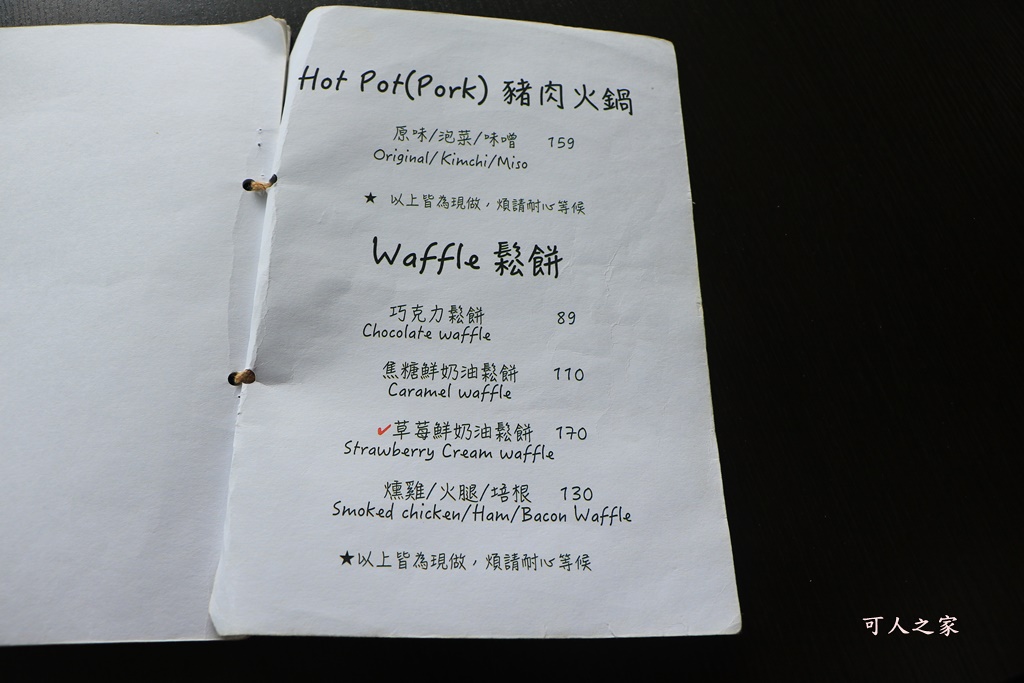 Hot Pot(Pork) 豬肉火鍋
原味/泡菜/味噌 159
Original/Kimchi/Miso
★ 以上皆為現做，煩請耐心等候
Waffle 鬆餅
巧克力鬆餅 89
Chocolate waffle
焦糖鮮奶油鬆餅 110
Caramel waffle
✔草莓鮮奶油鬆餅 170
Strawberry Cream waffle
燻雞/火腿/培根 130
Smoked chicken/Ham/Bacon Waffle
★以上皆為現做，煩請耐心等候
可人之家